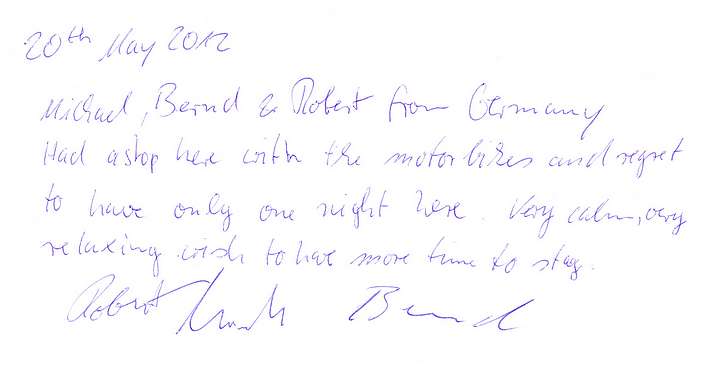 20th May 2012
Michael, Bernd & Robert from Germany
Had a stop here with the motorbikes and regret
to have only one night here. Very calm, very
relaxing. wish to have more time to stay.
Robert Bernd